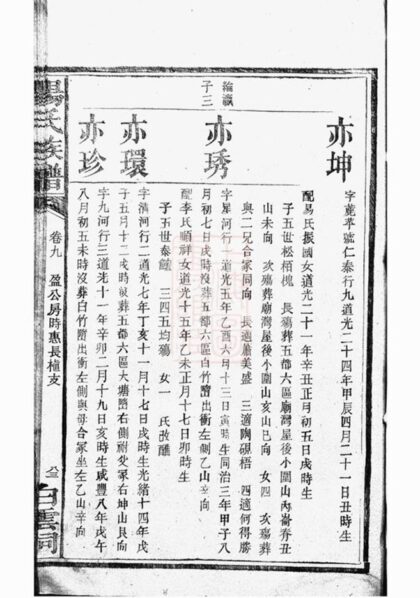 亦坤
字蓖亭號仁泰行九道光二十四年甲辰四月二十一日丑時生
配易氏振國女道光二十一年辛丑正月初五日戌時生
子五世松栢槐 長殤葬五都六區廟灣屋後小園山內崙舂丑
山未向 次殤葬廟灣屋後小園山亥山巳向 女四 次殤葬
與二兄合冢同向 長適蕭美盛 三適陶硯梧 四適何得勝
綸瀛
子三
亦琇
字星河行一道光五年乙酉六月十三日寅時生同治三年甲子八
月初七日戌時沒葬五都六區白竹嶝出衝左側乙山辛向
配李氏順祥女道光十五年乙未正月十七日卯時生
子五世泰 三四五均殤 女一 氏改醮
亦環
字清河行二道光七年丁亥十一月十七日戌時生光緒十四年戊
子五月十二戌時歿葬五都六區大塘嶝右側祔父冢右坤山艮向
亦珍
字九河行三道光十一年辛卯二月十九日亥時生咸豐八年戊午
八月初五未時沒葬白竹嶝出衝左側與母合冢坐左乙山辛向
楊氏族譜
卷九 盈公房時惠長植支
白雲祠